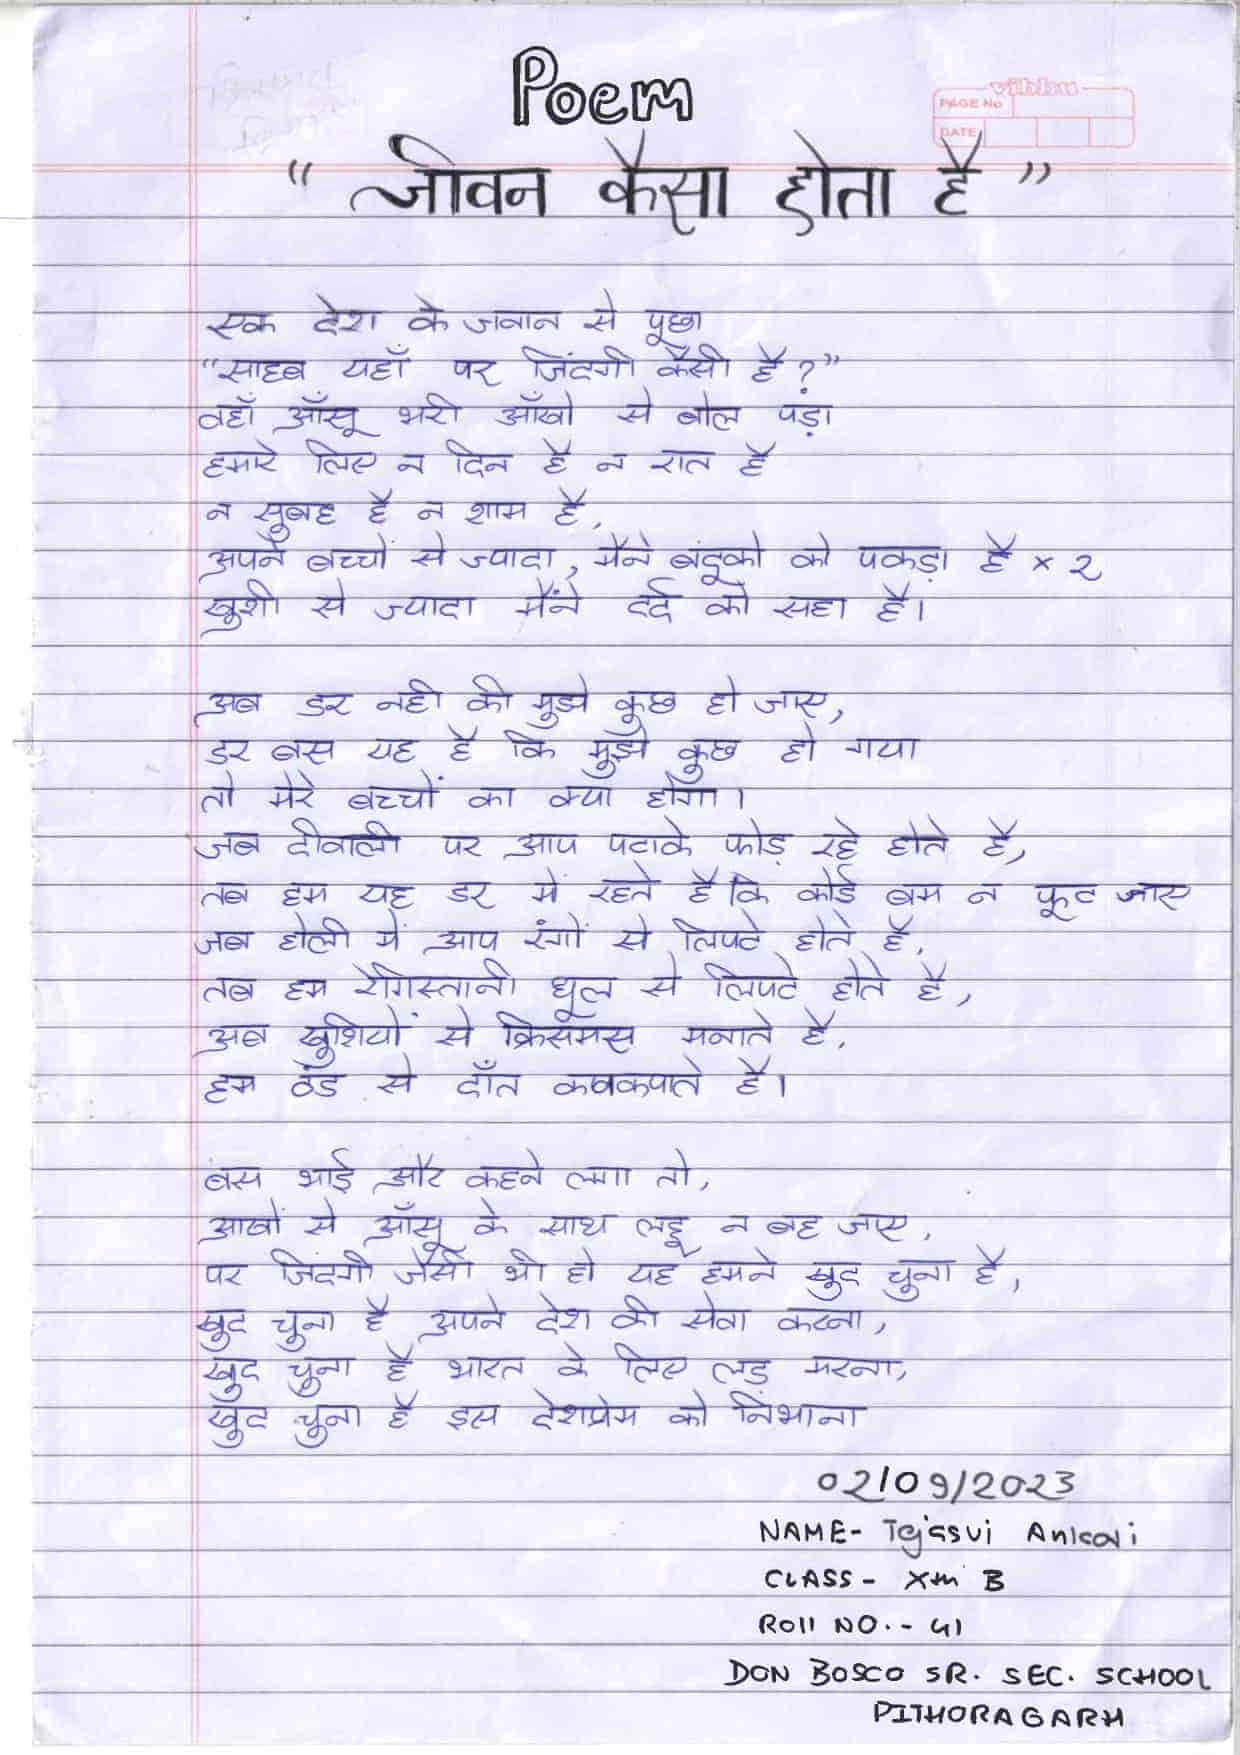 Poem
vibhu
PAGE No
DATE
" जीवन कैसा होता है "
एक देश के जवान से पूछा
"साहब यहाँ पर जिंदगी कैसी है ?"
वहाँ आँसू भरी आँखो से बोल पड़ा
हमारे लिए न दिन है न रात है
न सुबह है न शाम है,
अपने बच्चों से ज्यादा, मैने बंदूको को पकड़ा है × 2
खुशी से ज्यादा मैंने दर्द को सहा है।
अब डर नही की मुझे कुछ हो जाए,
डर बस यह है कि मुझे कुछ हो गया
तो मेरे बच्चों का क्या होगा।
जब दीवाली पर आप पटाके फोड़ रहे होते है,
तब हम यह डर में रहते है कि कोई बम न फूट जाए
जब होली में आप रंगों से लिपटे होते है,
तब हम रेगिस्तानी धूल से लिपटे होते है,
अब खुशियों से क्रिसमस मनाते है,
हम ठंड से दाँत कबकपाते है।
बस भाई और कहने लगा तो,
आखों से आँसू के साथ लहू न बह जाए,
पर जिंदगी जैसी भी हो यह हमने खुद चुना है,
खुद चुना है अपने देश की सेवा करना,
खुद चुना है भारत के लिए लड़ मरना,
खुद चुना है इस देशप्रेम को निभाना
02/09/2023
NAME- Tejasvi
CLASS - B
Roll NO. - 41
DON BOSCO SR. SEC. SCHOOL
PITHORAGARH